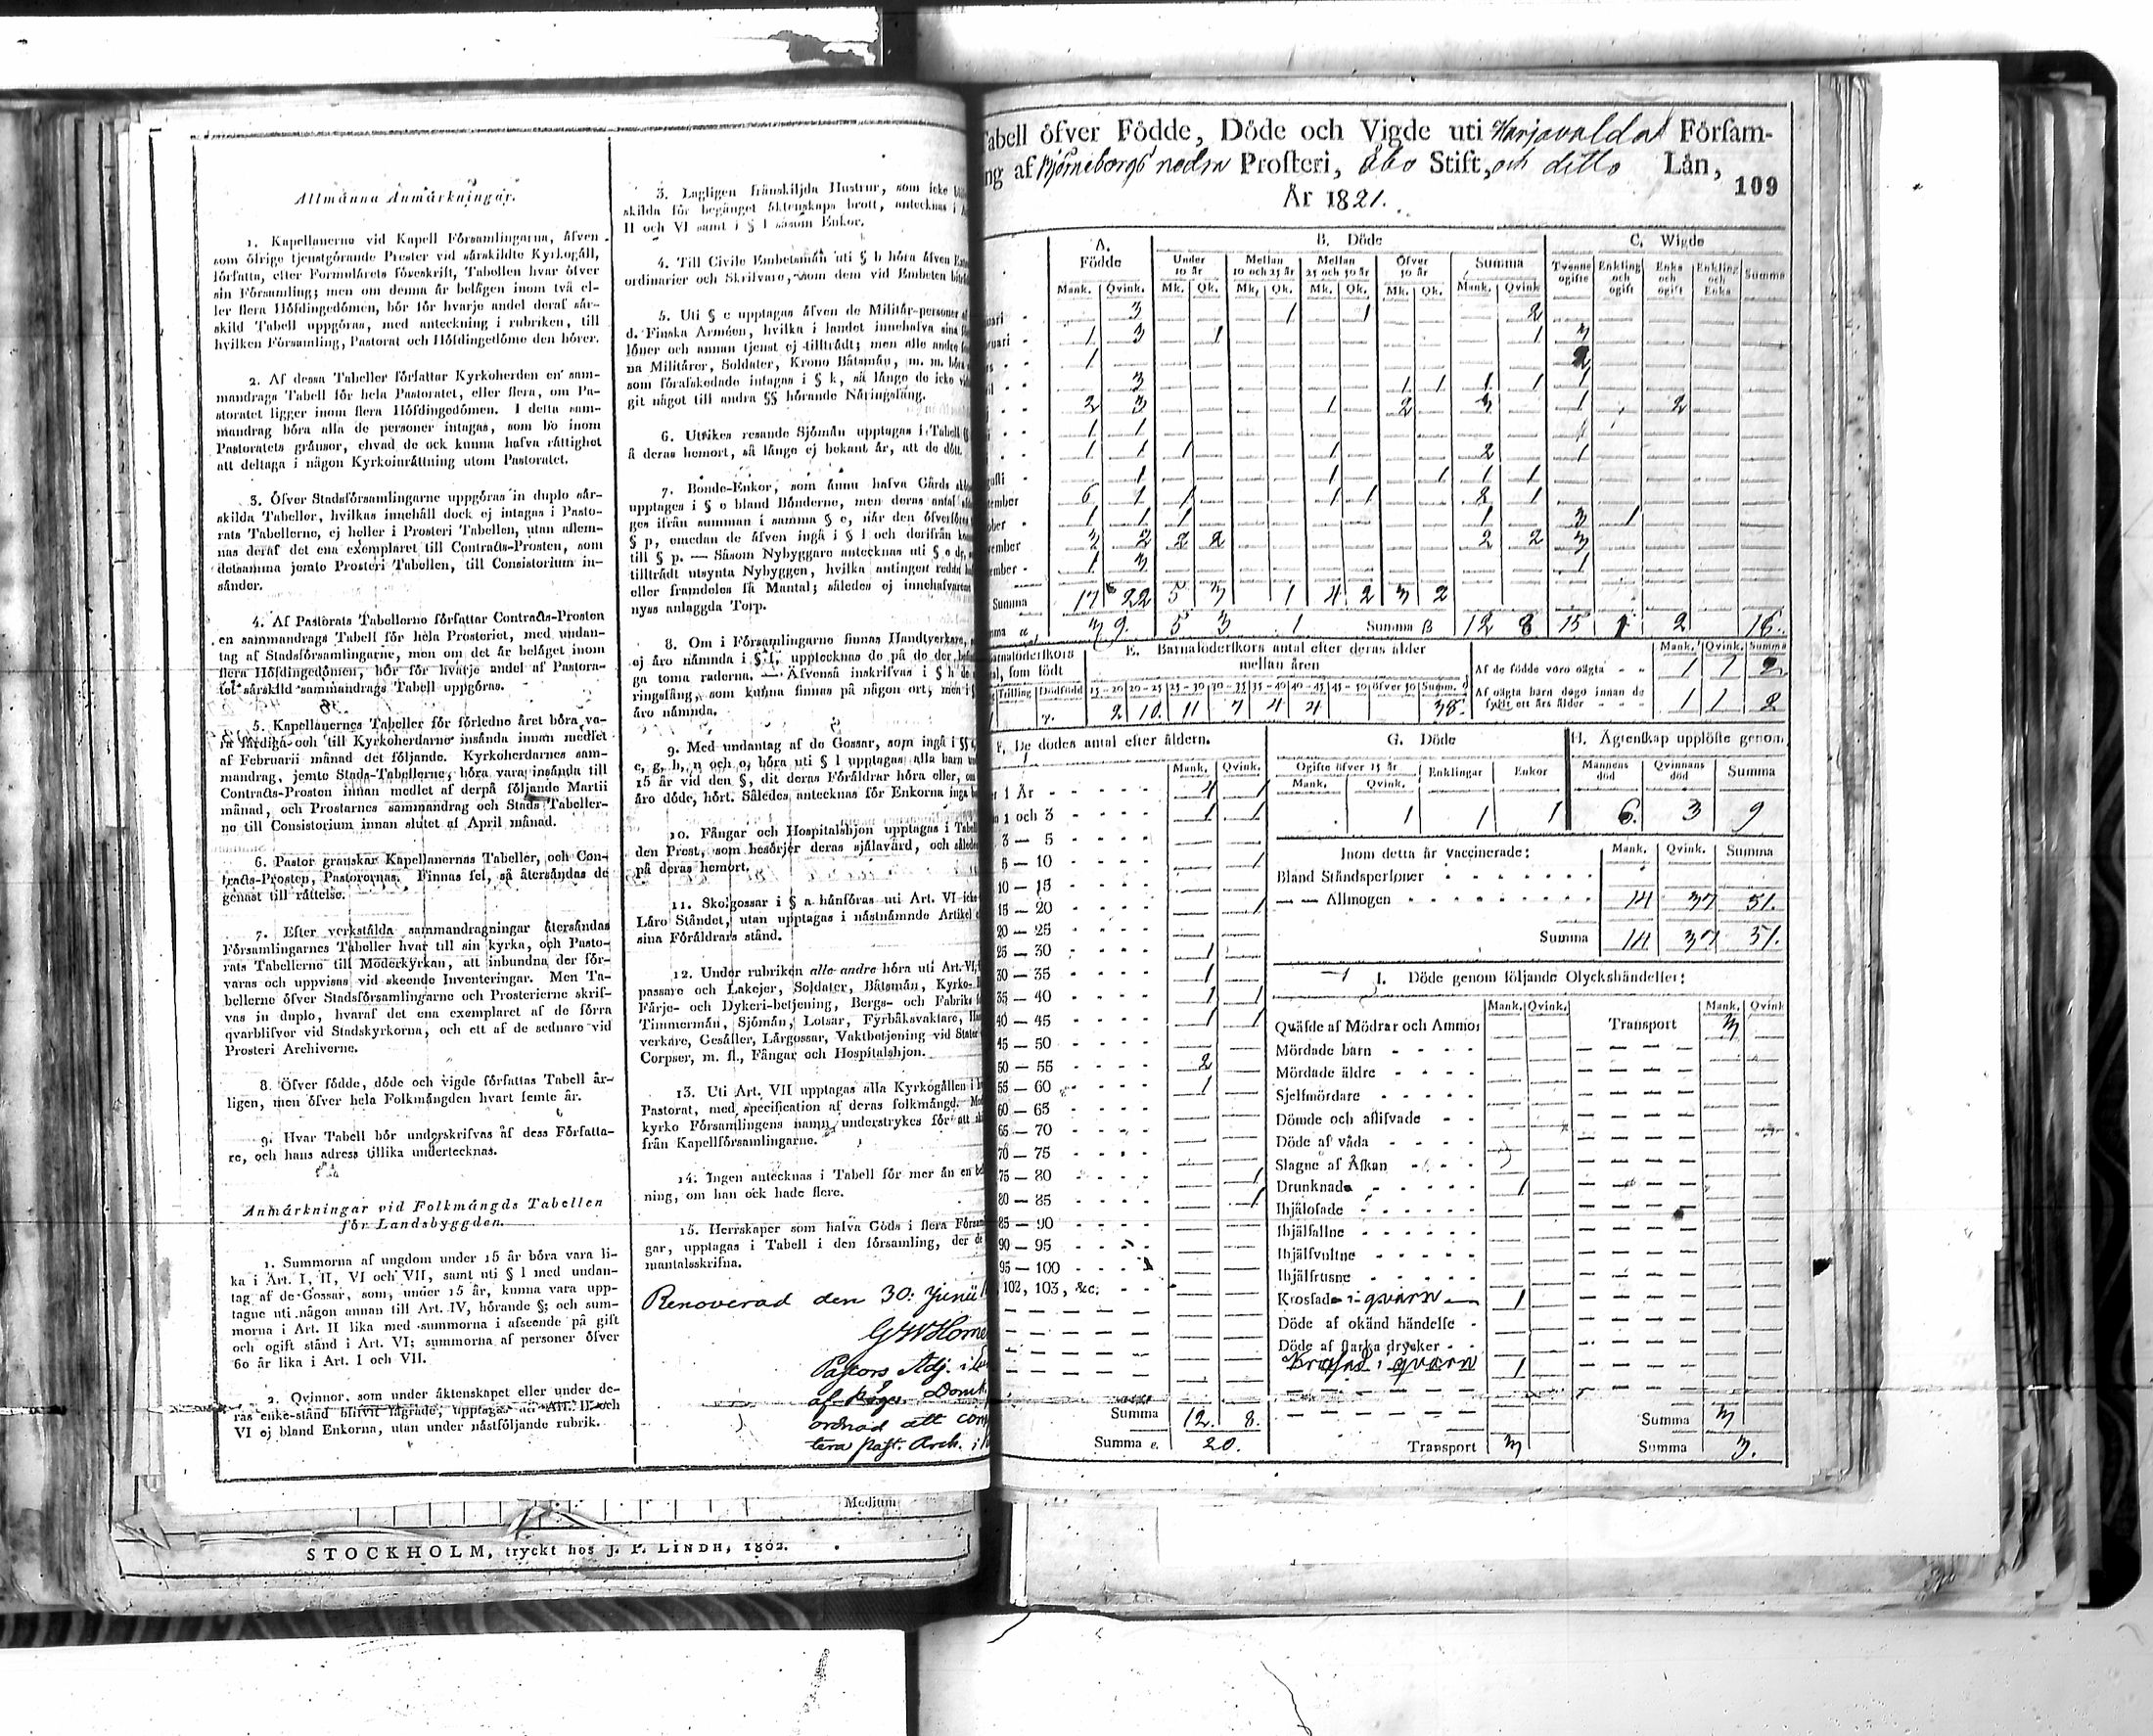 Allmänna Anmärkningar.
1. Kapellanerne vid Kapell Församlingarna, äfven
som öfrige tjenstgörande Prester vid särskildte Kyrkogäll,
författa, efter Formulärets föreskrift, Tabellen hvar öfver
sin Församling; men om denna är belägen inom två el-
ler flera Höfdingedömen, bör för hvarje andel deraf sär-
skild Tabell uppgöras, med anteckning i rubriken, till
hvilken Församling, Pastorat och Höfdingedöme den hörer.
2. Af dessa Tabeller författar Kyrkoherden en sam-
mandrags Tabell för hela Pastoratet, eller flera, om Pa-
storatet ligger inom flera Höfdingedömen. I detta sam-
mandrag böra alla de personer intagas, som bo inom
Pastoratets gränsor, ehvad de ock kunna hafva rättighet
att deltaga i någon Kyrkoinrättning utom Pastoratet.
3. Öfver Stadsförsamlingarne uppgöras in duplo sär-
skilda Tabeller, hvilkas innehåll dock ej intagas i Pasto-
rats Tabellerne, ej heller i Prosteri Tabellen, utan aflem-
nas deraf det ena exemplaret till Contracts-Prosten, som
detsamma jemte Prosteri Tabellen, till Consistorium in-
sänder.
4. Af Pastorats Tabellerne författar Contracts-Prosten
en sammandrags Tabell för hela Prosteriet, med undan-
tag af Stadsförsamlingarne, men om det är beläget inom
flera Höfdingedömen, bör för hvarje andel af Pastora-
tet särskild sammandrags Tabell uppgöras.
5. Kapellanernes Tabeller för förledne året böra va-
ra färdiga och till Kyrkoherdarne insända innan medlet
af Februarii månad det följande. Kyrkoherdarnes sam-
mandrag, jemte Stads-Tabellerne, böra vara insända till
Contracts-Prosten innan medlet af derpå följande Martii
månad, och Prostarnes sammandrag och Stads Tabeller-
ne till Consistorium innan slutet af April månad.
6. Pastor granskar Kapellanernas Tabeller, och Con-
tracts-Prosten, Pastorernas. Finnas fel, så återsändas de
genast till rättelse.
7. Efter verkställda sammandragningar återsändas
Församlingarnes Tabeller hvar till sin kyrka, och Pasto-
rats Tabellerne till Moderkyrkan, att inbundna der för-
varas och uppvisas vid skeende Inventeringar. Men Ta-
bellerne öfver Stadsförsamlingarne och Prosterierne skrif-
vas in duplo, hvaraf det ena exemplaret af de förra
qvarblifver vid Stadskyrkorna, och ett af de sednare vid
Prosteri Archiverne.
8. Öfver födde, döde och vigde författas Tabell är-
ligen, men öfver hela Folkmängden hvart femte år.
9. Hvar Tabell bör underskrifvas af dess Författa-
re, och hans adress tillika undertecknas.
Anmärkningar vid Folkmängds Tabellen
för Landsbyggden.
1. Summorna af ungdom under 15 år böra vara li-
ka i Art. I, II, VI och VII, samt uti § l med undan-
tag af de Gossar, som, under 15 år, kunna vara upp-
tagne uti någon annan till Art. IV, hörande §; och sum-
morna i Art. II lika med summorna i afseende på gift
och ogift stånd i Art. VI; summorna af personer öfver
60 år lika i Art. I och VII.
2. Qvinnor, som under äktenskapet eller under de-
ras enke-stånd blifvit lägrade, upptagas uti Art. II och
VI ej bland Enkorna, utan under nästföljande rubrik.
3. Lagligen frånskiljda Hustrur, som icke
skilda för begånget äktenskaps brott, antecknas i
II och VI samt i § l såsom Enkor.
4. Till Civile Embetsmän uti § b höra äfven
ordinarier och Skrifvare, som dem vid Embeten
5. Uti § c upptagas äfven de Militär-personer
d. Finska Arméen, hvilka i landet innehafva sina
löner och annan tjenst ej tillträdt; men alle andre
na Militärer, Soldater, Krono Båtsmän, m. m. böra
som förafskedade intagas i § k, så länge de icke
git något till andra §§ hörande Näringsfång.
6. Utrikes resande Sjömän upptagas i Tabell
å deras hemort, så länge ej bekant är, att de dött.
7. Bonde-Enkor, som ännu hafva Gårds
upptages i § o bland Bönderne, men deras antal
ges ifrån summan i samma § o, när den öfverföres
§ p, emedan de äfven ingå i § l och derifrån
till § p. — Såsom Nybyggare antecknas uti § o de,
tillträdt utsynta Nybyggen, hvilka antingen redan
eller framdeles få Mantal; således ej innehafvaren
nyss anlaggda Torp.
8. Om i Församlingarne finnas Handtverkare,
ej äro nämnda i § f, upptecknas de på de der
ga toma raderna. — Äfvenså inskrifvas i § h
ringsfång, som kunna finnas på någon ort, men i
äro nämnda.
9. Med undantag af de Gossar, som ingå i §§
e, g, h, n och o, böra uti § l upptagas alla barn
15 år vid den §, dit deras Föräldrar höra eller, om
äro döde, hört. Således antecknas för Enkorna inga
10. Fångar och Hospitalshjon upptagas i
den Prest, som besörjer deras själavård, och således
på deras hemort.
11. Skolgossar i § a hänföras uti Art. VI icke
Läro Ståndet, utan upptagas i nästnämnde Artikel
sina Föräldrars stånd.
12. Under rubriken alle andre höra uti Art. VI,
passare och Lakejer, Soldater, Båtsmän, Kyrko-
Färje- och Dykeri-betjening, Bergs- och Fabriks
Timmermän, Sjömän, Lotsar, Fyrbåksvaktare,
verkare, Gesäller, Lärgossar, Vaktbetjening vid
Corpser, m. fl., Fångar och Hospitalshjon.
13. Uti Art. VII upptagas alla Kyrkogällen i
Pastorat, med specification af deras folkmängd.
kyrko Församlingens namn understrykes för att
från Kapellförsamlingarne.
14. Ingen antecknas i Tabell för mer än en
ning, om han ock hade flere.
15. Herrskaper som hafva Gods i flera
gar, upptagas i Tabell i den församling, der de
mantalsskrifna.
Renoverad den 30: Junii
Pastors Adj. i
ordnad att
tera past. Arch. i
Medium
STOCKHOLM, tryckt hos J. P. LINDH, 1802.
Tabell öfver Födde, Döde och Vigde uti Harjavalda Församling
ng af Björneborgs nedre Prosteri, Åbo Stift, och ditto Län,
109
År 1821.
A. Födde B. Döde C. Wigde
Under 10 år Mellan 10 och 25 år Mellan 25 och 50 år Öfver 50 år Summa Tvenne ogifte Enkling och ogift Enka och ogift Enkling och Enka Summa
Mank. Qvink. Mk. Qk. Mk. Qk. Mk. Qk. Mk. Qk. Mank. Qvink
uari 3 1 1 2
ruari 1 3 1 1 3
1 2
3 1 1 1 1 1
2 3 1 2 3 1 2
1 1 1
1 1 1 1 2 1
gusti 1 1 1 1 1
ember 6 1 1 1 1 2 1
ober 1 1 1 1 3 1
vember 3 2 2 2 2 2 3
ember 1 3 1
Summa 17 22 5 3 1 4 2 3 2
39. 5 3 1 Summa ß 12 8 15 1 2 18.
E. Barnaföderskors antal efter deras ålder
mellan åren
Trilling Dödfödd 15-20 20-25 25-30 30-35 35-40 40-45 45-50 öfver 50 Summ.
2 10. 11 7 4 4 38.
Mank. Qvink. Summa
Af de födde voro oägta 1 1 2
Af oägta barn dogo innan de
fyllt ett års ålder 1 1 2
F. De dödes antal efter åldern.
Mank. Qvink.
1 År 4 1
1 och 3 1 1
3 — 5
5 — 10 1
10 — 15
15 — 20 1
20 — 25
25 — 30 1
30 — 35 1
35 — 40 1 1
40 — 45 1 1
45 — 50
50 — 55 2
55 — 60 1
60 — 65
65 — 70
70 — 75
75 — 80 1
80 — 85 1
85 — 90
90 — 95
95 — 100
102, 103, &c.
Summa 12. 8.
Summa e. 20.
G. Döde
Ogifte öfver 15 år Enklingar Enkor
Mank. Qvink.
1 1 1
H. Ägtenskap upplöste genom
Mannens död Qvinnans död Summa
6. 3 9
Inom detta år vaccinerade: Mank. Qvink. Summa
Bland Ståndspersoner
— — Allmogen 14 37 51.
Summa 14 37 51.
I. Döde genom följande Olyckshändelser:
Mank. Qvink. Mank. Qvink
Qväfde af Mödrar och Ammor Transport 3
Mördade barn
Mördade äldre
Sjelfmördare
Dömde och aflifvade
Döde af våda
Slagne af Åskan
Drunknade 1
Ihjälofade
Ihjälfallne
Ihjälfvultne
Ihjälfrusne
Krossade i qvarn 1
Döde af okänd händelse
Döde af starka drycker
Krossad i qvarn 1
Summa 3
Transport 3 Summa 3.